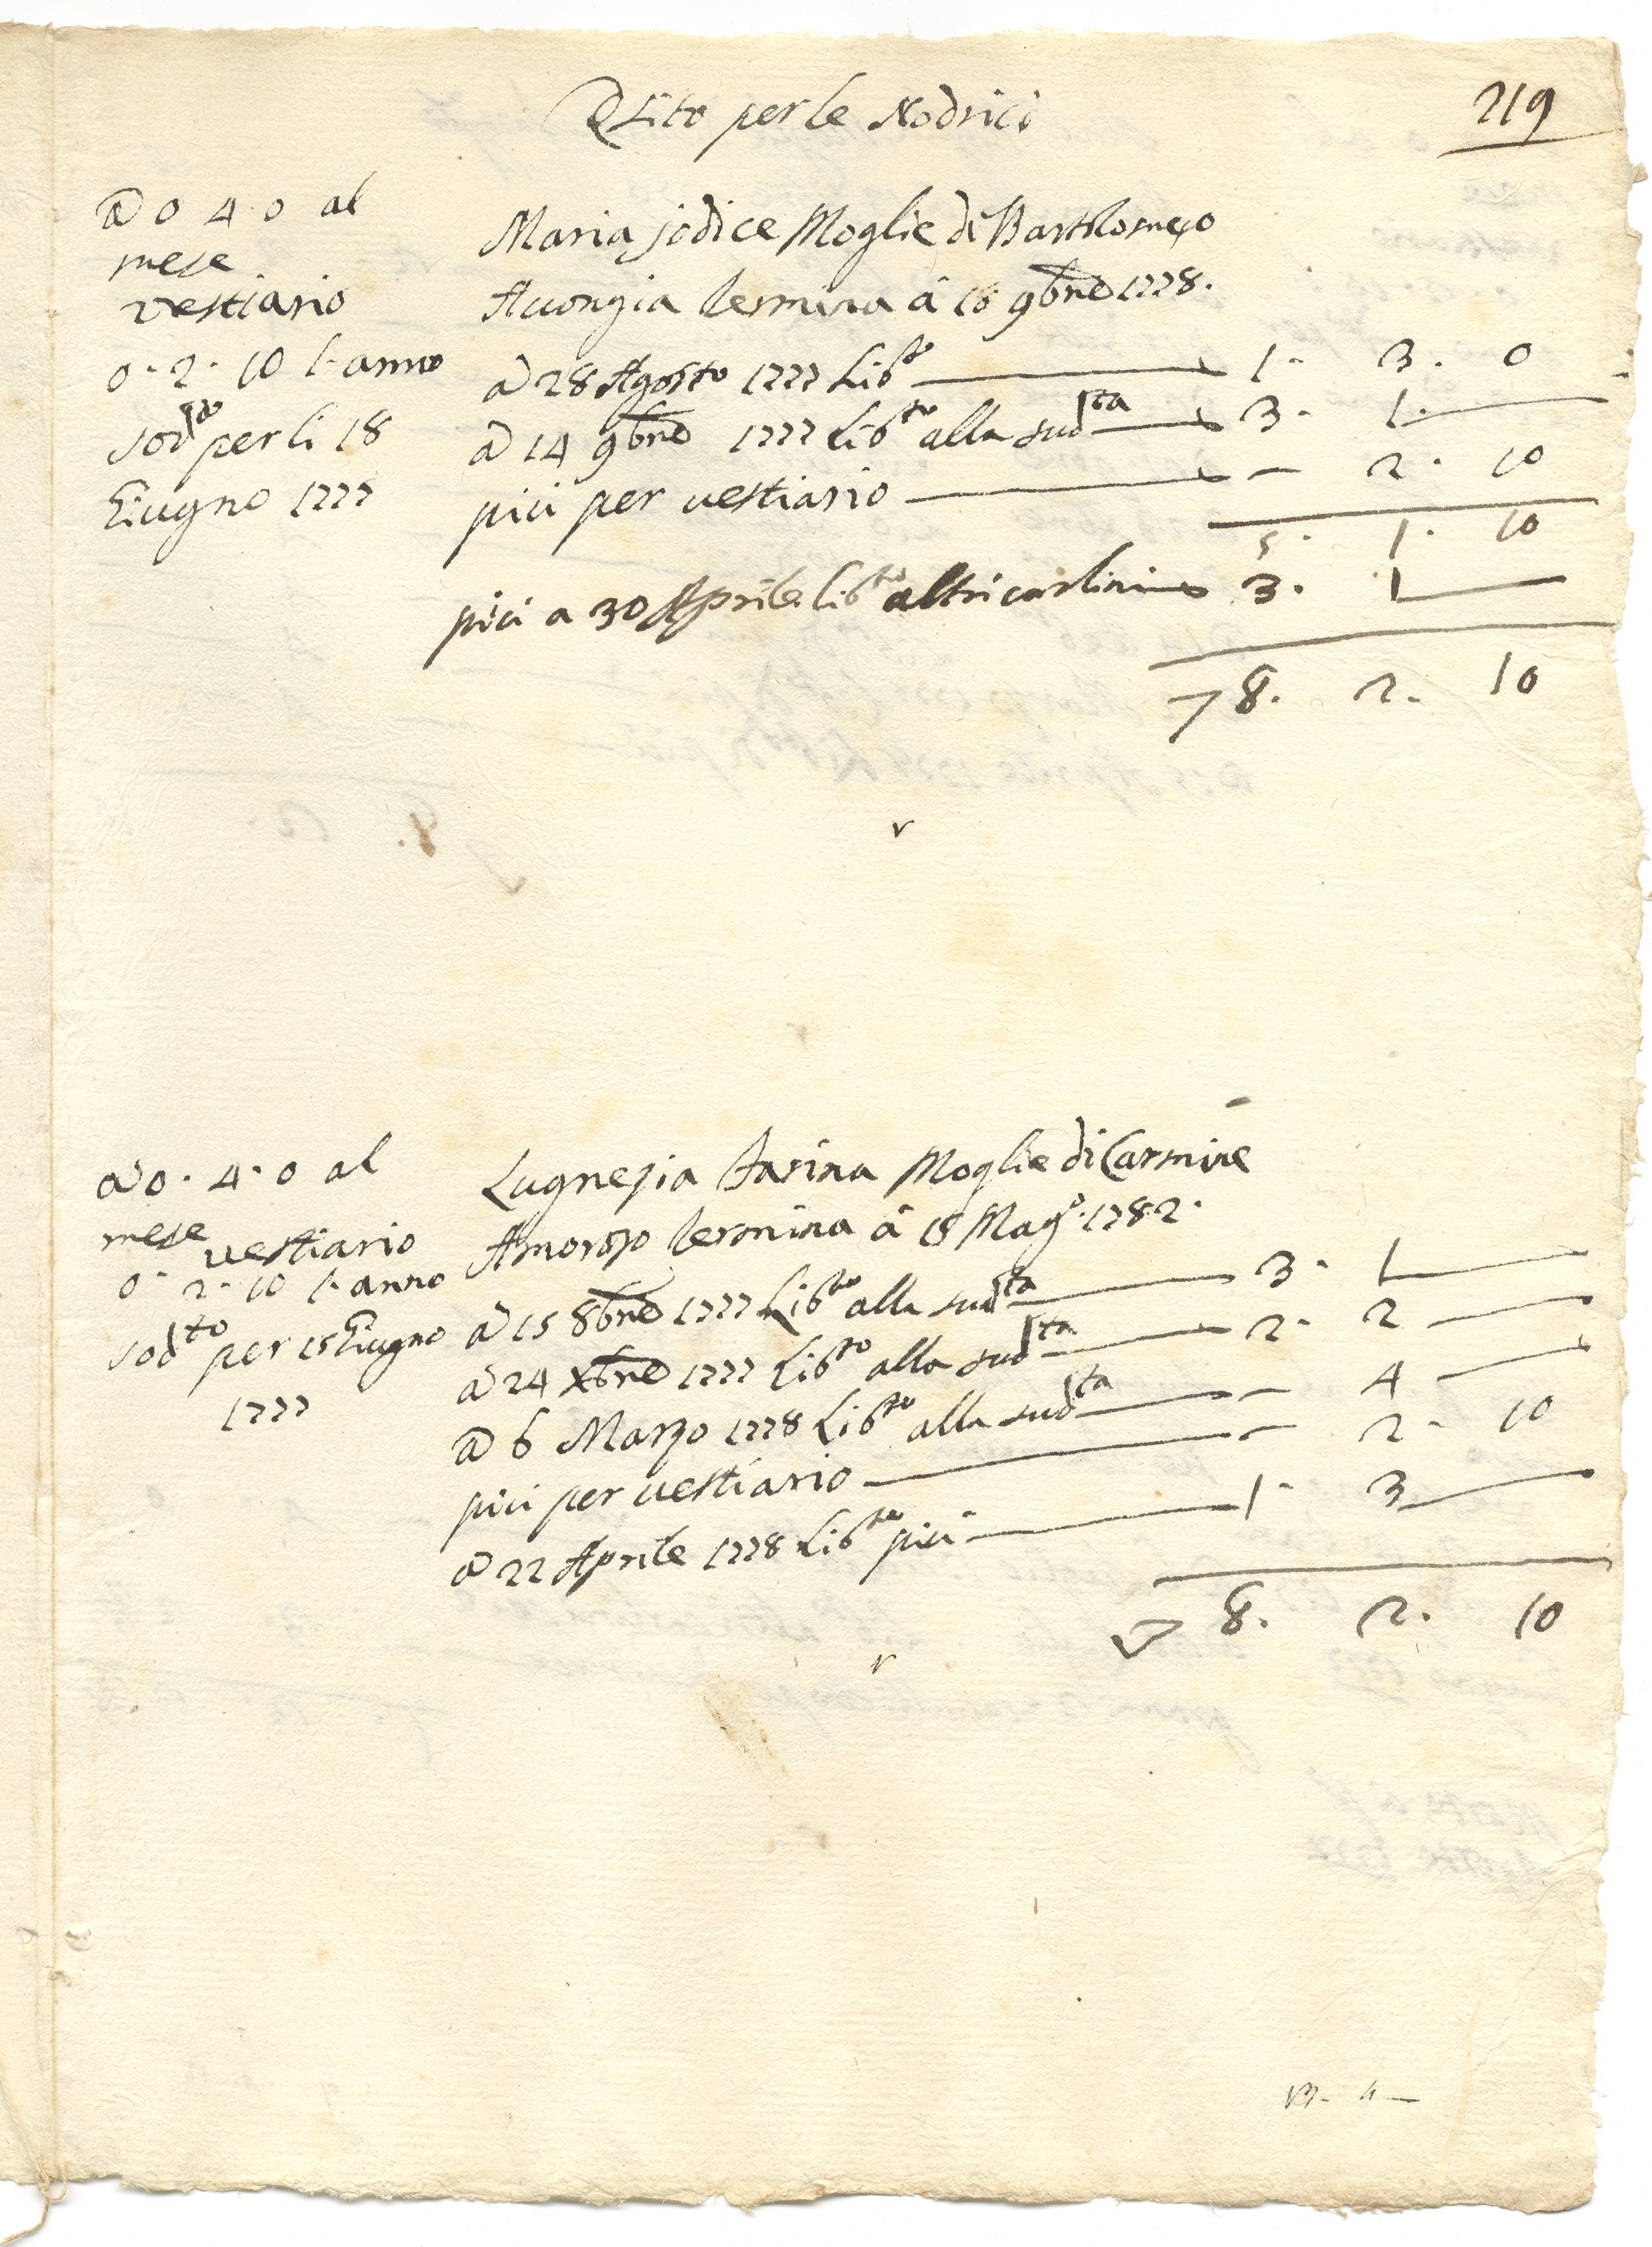 Esito per le Nodrici
219
a 0 4 0 al
mese
vestiario
0. 2. 10 l'anno
sodto per li 18
Giugno 1777
Maria jodice Moglie di Bartolomeo
termina à 18 9bre 1778.
a 28 Agosto 1777 Libto 1. 3. 0
a 14 9bre 1777 Libto alla sudta 3. 1.
più per vestiario — 2. 10
5. 1. 10
più a 30 Aprile libto altri carlini 3. 1
8. 2. 10
a 0. 4. 0 al
mese vestiario
0. 2. 10 l'anno
sodto per 15 Giugno
1777
Lugnezia Farina Moglie di Carmine
Amorozo termina à 18 Mago. 1782.
a 15 8bre 1777 Libto alla sudta 3. 1
a 24 Xbre 1777 Libto alla sudta 2. 2
a 6 Marzo 1778 Libto alla sudta — 4
più per vestiario — 2. 10
a 22 Aprile 1778 Libto più 1. 3
8. 2. 10